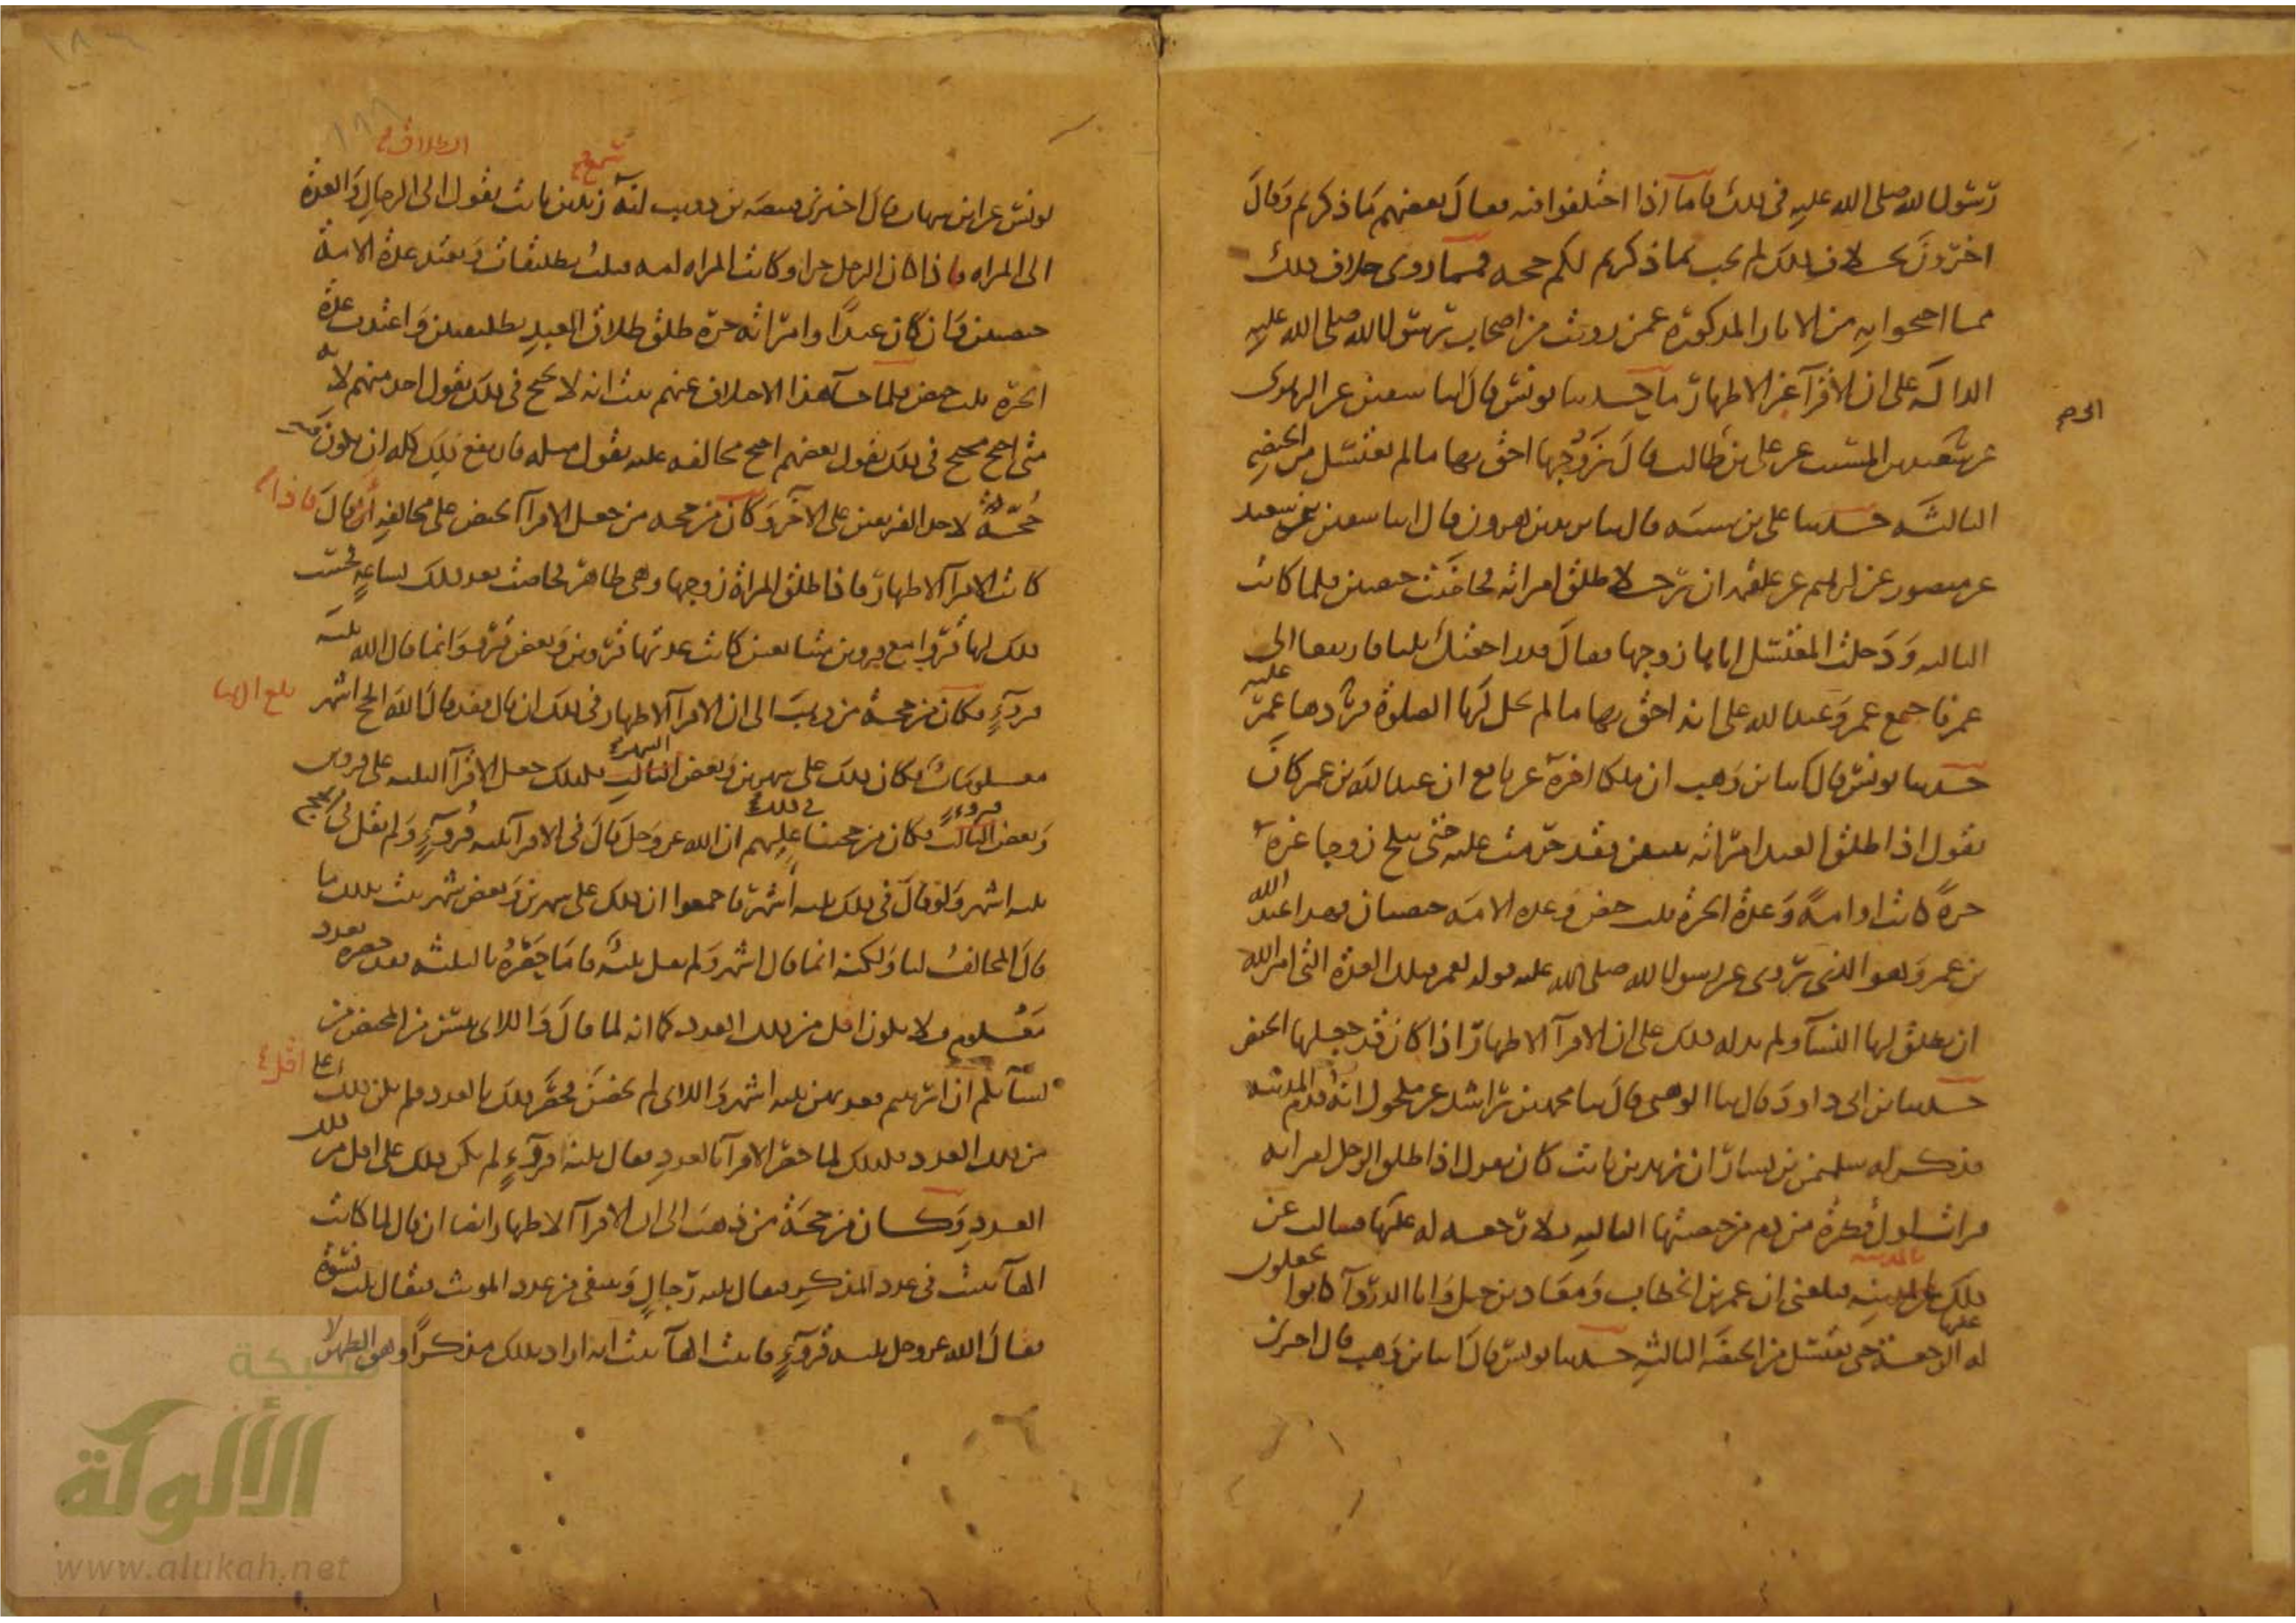 رسول الله صلى الله عليه في ذلك فاما اذا اختلفوا فيه فقال بعضهم ما ذكرتم وقال
اخرون بخلاف ذلك لم يجب بما ذكرتم لكم حجة فمما روي خلاف ذلك
مما احتجوا به من الاثار المذكورة عمن رويت من اصحاب رسول الله صلى الله عليه
الدالة على ان الاقرآ غير الاطهار ما حدثنا يونس قال ثنا سفين عن الزهري
عن سعيد بن المسيب عن علي بن ابي طالب قال زوجها احق بها ما لم تغتسل من الحيضة
الثالثة حدثنا علي بن شيبة قال ثنا يزيد بن هرون قال انا سفين بن سعيد
عن منصور عن ابرهيم عن علقمة ان رجلا طلق امراته فحاضت حيضتين فلما كانت
الثالثة ودخلت المغتسل اتاها زوجها فقال قد راجعتك ثلثا فارتفعا الى
عمر فاجمع عمر وعبد الله على انه احق بها ما لم تحل لها الصلوة فردها عمر عليه
حدثنا يونس قال ثنا بن وهب ان ملكا اخبره عن نافع ان عبد الله بن عمر كان
يقول اذا طلق العبد امراته ثنتين فقد حرمت عليه حتى تنكح زوجا غيره
حرة كانت او امة وعدة الحرة ثلث حيض وعدة الامة حيضتان فهذا عبد الله
بن عمر وهو الذي روى عن رسول الله صلى الله عليه قوله لعمر فتلك العدة التي امر الله
ان يطلق لها النسآ ولم يدله ذلك على ان الاقرآ الاطهار اذا كان قد جعلها الحيض
حدثنا بن ابي داود قال ثنا الوهبي قال ثنا محمد بن راشد عن مكحول انه قدم المدينة
فذكر له سليمن بن يسار ان زيد بن ثابت كان يقول اذا طلق الرجل امراته
فرات اول قطرة من دم من حيضتها الثالثة فلا رجعة له عليها فسالت عن
ذلك بالمدينة فبلغني ان عمر بن الخطاب ومعاذ بن جبل وابا الدردآ كانوا يجعلون
له الرجعة عليها حتى تغتسل من الحيضة الثالثة حدثنا يونس قال ثنا بن وهب قال اخبرني
الطلاق
يونس عن ابن شهاب قال اخبرني قبيصة بن ذويب انه سمع زيد بن ثابت يقول الى الرجال والعدة
الى المراه فاذا كان الرجل حرا وكانت المراه امة فثلث تطليقات وتعتد عدة الامة
حيضتين وان كان عبدا وامراته حرة طلق طلاق العبد تطليقتين واعتدت عدة
الحرة ثلث حيض فلما جآ هذا الاختلاف عنهم ثبت انه لا يحتج في ذلك بقول احد منهم لانه
متى احتج محتج في ذلك بقول بعضهم احتج مخالفه عليه بقول مثله فارتفع ذلك كله ان يكون فيه
حجة لاحد الفريقين على الاخر وكان من حجة من جعل الاقرآ الحيض على مخالفه ان قال فاذا
كانت الاقرآ الاطهار فاذا طلق المراة زوجها وهي طاهرة فحاضت بعد ذلك بساعة فحسب
ذلك لها قروا مع قروين متتابعين كانت عدتها قروين وبعض قرو وانما قال الله ثلثة
قروءٍ فكان من حجة من ذهب الى ان الاقرآ الاطهار في ذلك ان قال فقد قال الله الحج اشهر
معلومات فكان ذلك على شهرين وبعض الثالث فكذلك جعل الاقرآ الثلثة على قروين
وبعض الثالث فكان من حجتنا عليهم في ذلك ان الله عز وجل قال في الاقرآ ثلثة قروءٍ ولم يقل في الحج
ثلثة اشهر ولو قال في ذلك ثلثة اشهر فاجمعوا ان ذلك على شهرين وبعض شهر ثبت بذلك ما
قال المخالف لنا ولكنه انما قال اشهر ولم يقل ثلثة فاما ما حصره بالثلثة فقد حصره بعدد
معلوم فلا يكون اقل من ذلك العدد كما انه لما قال واللائي يئسن من المحيض من
نسآئكم ان ارتبتم فعدتهن ثلثة اشهر واللائي لم يحضن فحصر ذلك بالعدد فلم يكن ذلك على اقل
من ذلك العدد فكذلك لما حصر الاقرآ بالعدد فقال ثلثة قروءٍ لم يكن ذلك على اقل من ذلك
العدد وكان من حجة من ذهب الى ان الاقرآ الاطهار ايضا ان قال لما كانت
الهآ تثبت في عدد المذكر فيقال ثلثة رجال وتنتفي من عدد المونث فيقال ثلث نسوة
فقال الله عز وجل ثلثة قروءٍ فاثبت الهآ ثبت انه اراد بذلك مذكرا وهو الطهر لا
شبكة
الألوكة
www.alukah.net